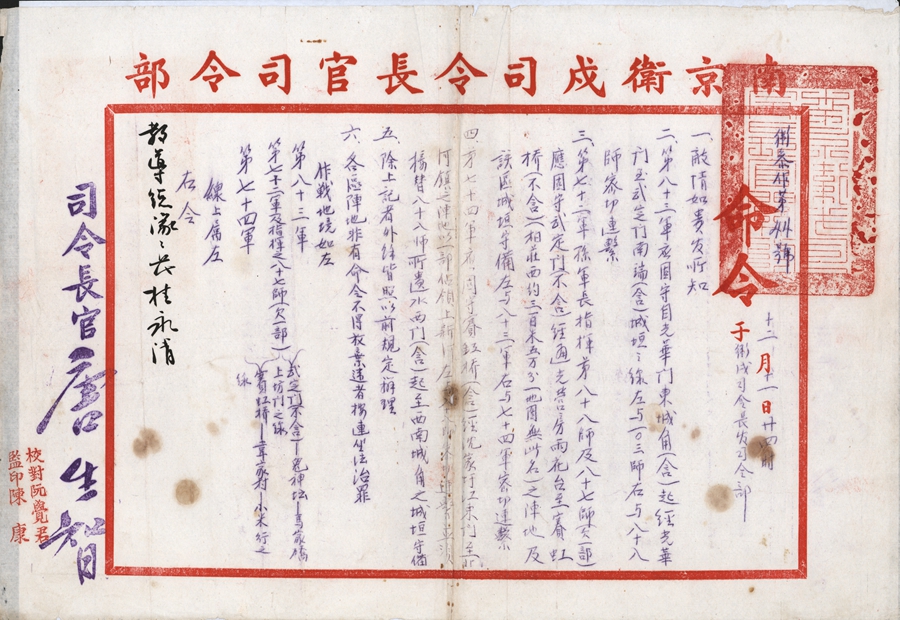 南京衛戍司令長官司令部
命令
十二月十一日廿四時
于衛戍司令長官司令部
一、敵情如貴官所知
二、第八十三軍應固守自光華門東城角(含)起經光華
門至武定門南端(含)城垣之線左与一〇三師右与八十八
師密切連繫
三、第七十二軍孫軍長指揮第八十八師及八十七師(欠一部)
應固守武定門(不含)經通光營房雨花台至賽虹
橋(不含)(相庄西約三百米五万分一地圖無此名)之陣地及
該區城垣守備左与八十三軍右与七十四軍密切連繫
四、第七十四軍應固守賽虹橋(含)
接替八十八師所遺水西門(含)起至西南城角之城垣守備
五、除上記者外餘皆照以前規定辦理
六、各區陣地非有命令不得放棄違者按連坐法治罪
作戰地境如左
第八十三軍
第七十二軍及指揮之八十七師(欠一部)
武定門(不含)—
上坊門之線
第七十四軍
賽虹橋—
線
線上屬左
右令
教導總隊隊長桂永清
司令長官唐生智
校對阮覺君
監印陳康